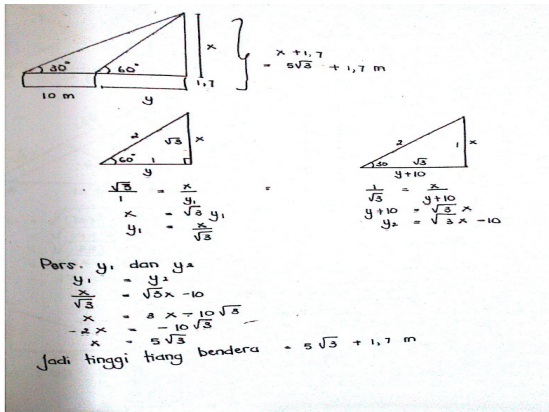 30° 60° x x + 1,7
= 5√3 + 1,7 m
1,7
10 m y
2 √3 x
60° 1
y
2 1 x
30 √3
y+10
√3/1 = x/y₁
x = √3 y₁
y₁ = x/√3
=
1/√3 = x/y+10
y+10 = √3 x
y₂ = √3 x - 10
Pers. y₁ dan y₂
y₁ = y₂
x/√3 = √3x - 10
x = 3x - 10√3
-2x = -10√3
x = 5√3
Jadi tinggi tiang bendera = 5√3 + 1,7 m